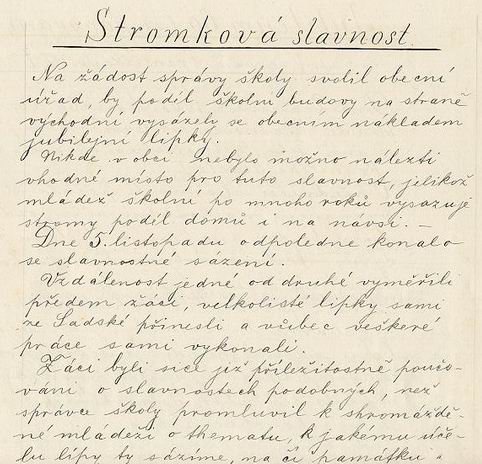 Stromková slavnost.
Na žádost správy školy svolil obecní
úřad, by podél školní budovy na straně
východní vysázely se obecním nákladem
jubilejní lípky.
Nikde v obci nebylo možno nalézti
vhodné místo pro tuto slavnost, jelikož
mládež školní po mnoho roků vysazuje
stromy podél domů i na návsi. —
Dne 5. listopadu odpoledne konalo
se slavnostné sázení.
Vzdálenost jedné od druhé vyměřili
předem žáci, velkolisté lípky sami
ze Sadské přinesli a vůbec veškeré
práce sami vykonali.
Žáci byli sice již příležitostně poučo-
váni o slavnostech podobných, než
správce školy promluvil k shromáždě-
né mládeži o thematu, k jakému úče-
lu lípy ty sázíme, na čí památku a